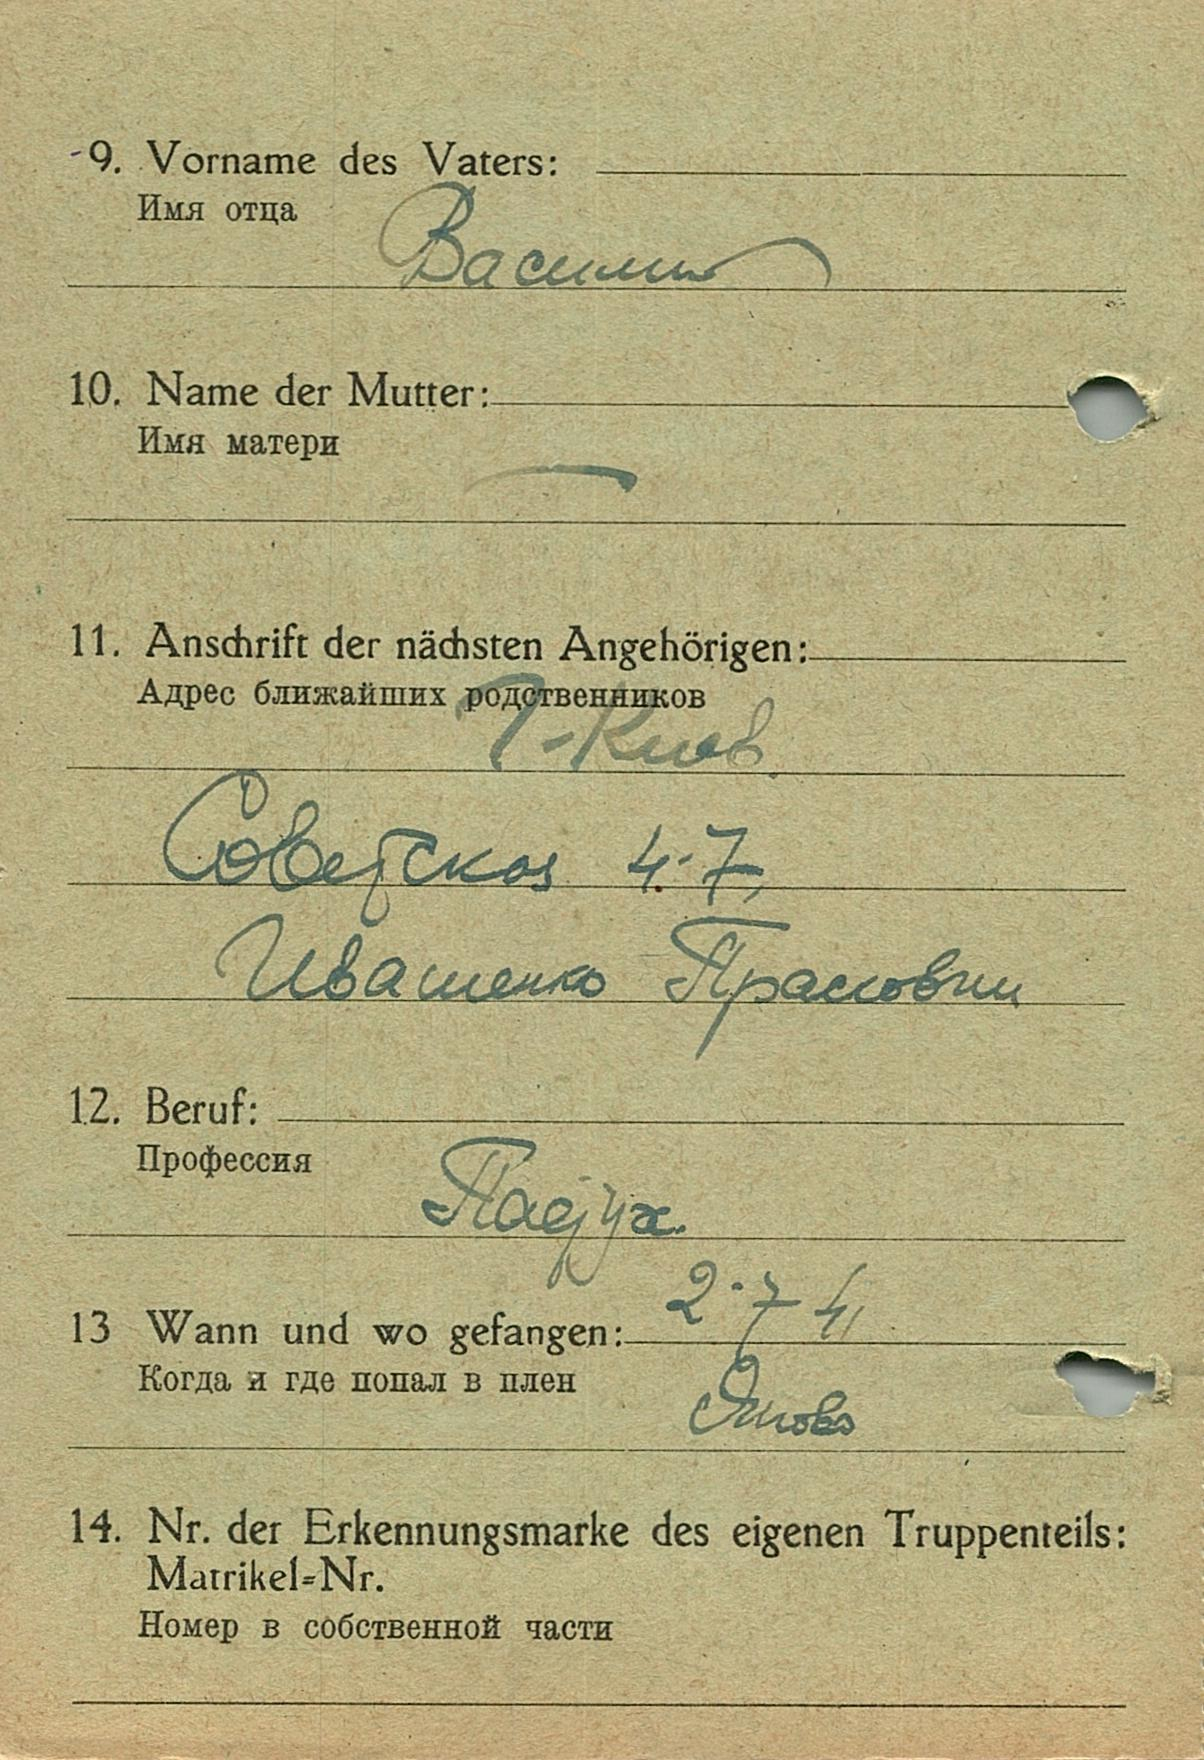 9. Vorname des Vaters:
Имя отца
Василий
10. Name der Mutter:
Имя матери
—
11. Anschrift der nächsten Angehörigen:
Адрес ближайших родственников
Г-Киев.
Советская 4-7,
Ивашенко Прасковии
12. Beruf:
Профессия
Пастух.
2·7 41
13 Wann und wo gefangen:
Когда и где попал в плен
14. Nr. der Erkennungsmarke des eigenen Truppenteils:
Matrikel-Nr.
Номер в собственной части